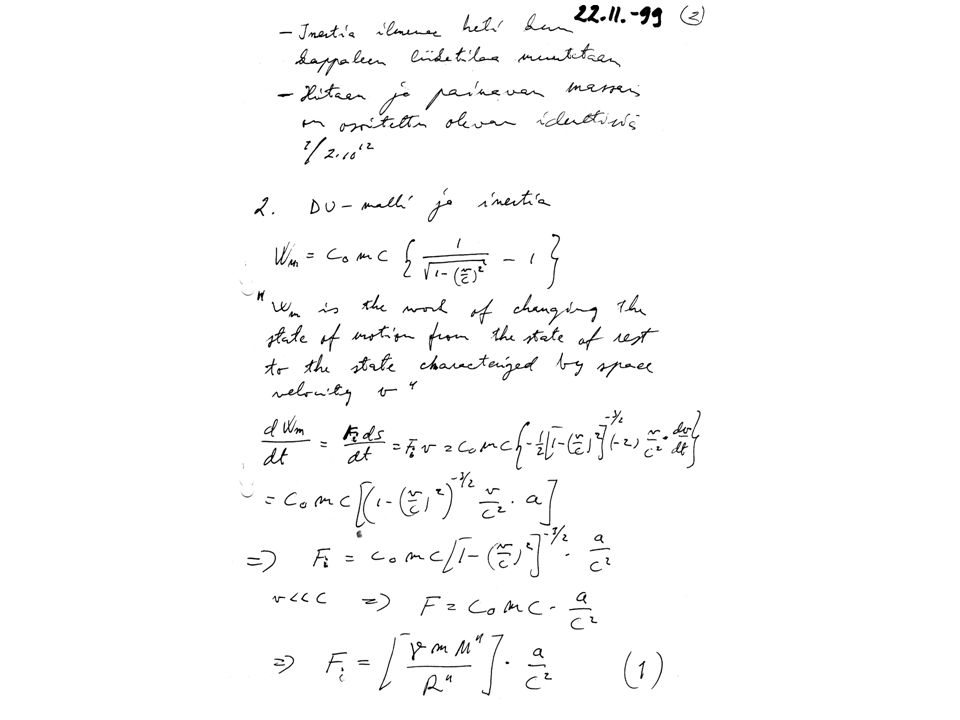 22.11.-99 (2)
- Inertia ilmenee heti kun
kappaleen liiketilaa muutetaan
- Hitaan ja painavan massan
on osoitettu olevan identtisiä
1/2·10^12
2. DU-malli ja inertia
W_m = C_0 m C { 1/√(1-(v/c)^2) - 1 }
"W_m is the work of changing the
state of motion from the state of rest
to the state characterized by space
velocity v"
dW_m/dt = F_i ds/dt = F_i v = C_0 m C { -1/2 [1-(v/c)^2]^(-3/2) (-2) v/c^2 · dv/dt }
= C_0 m C [ (1-(v/c)^2)^(-3/2) v/c^2 · a ]
=> F_i = C_0 m C [1-(v/c)^2]^(-3/2) · a/c^2
v<<c => F = C_0 m C · a/c^2
=> F_i = [ γ m M" / R" ] · a/c^2 (1)